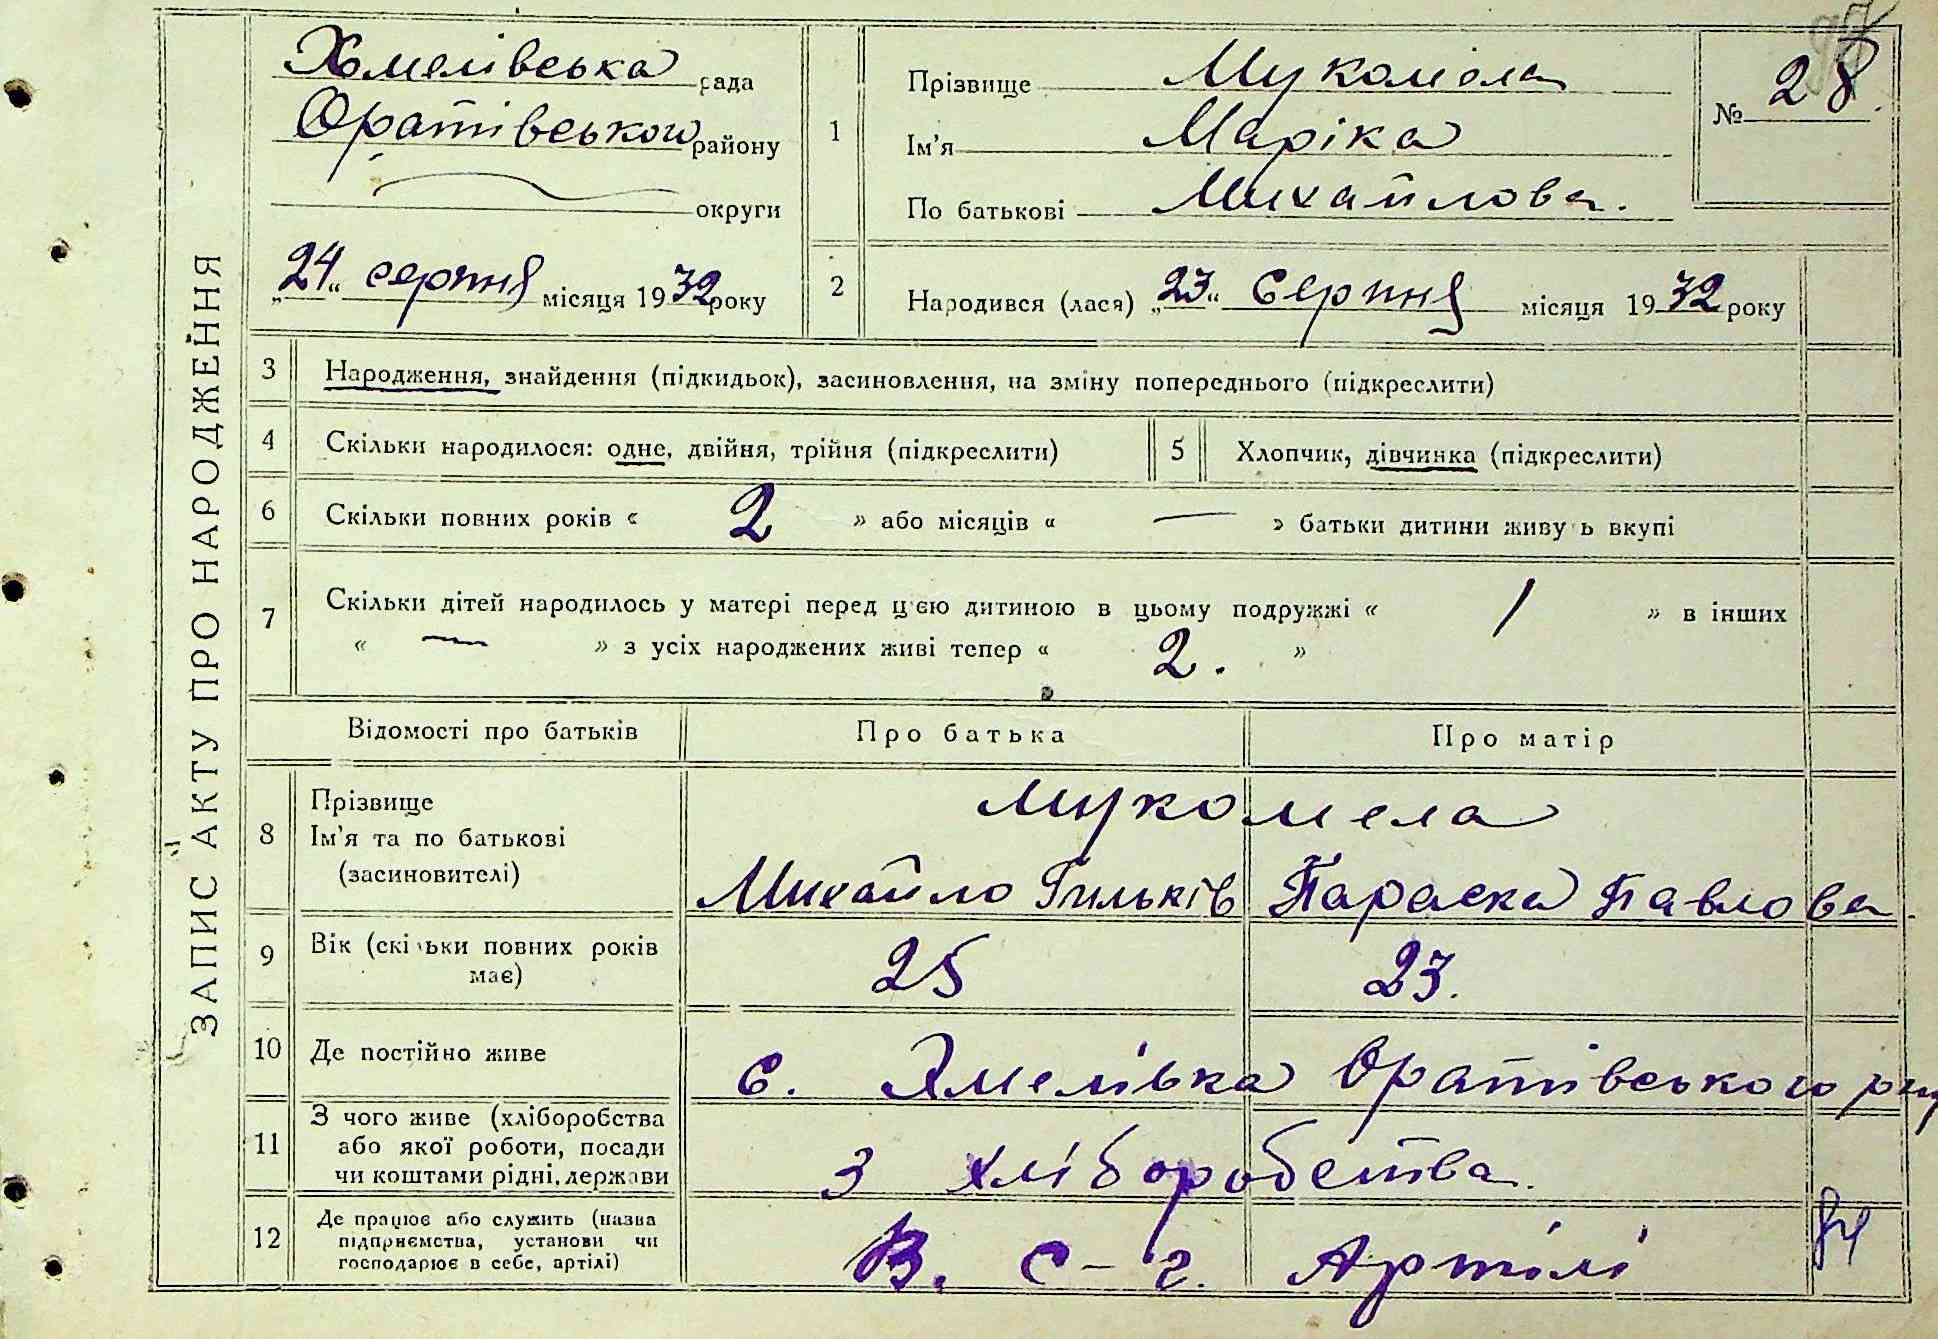 ЗАПИС АКТУ ПРО НАРОДЖЕННЯ
Хмелівська рада
Оратівського району
округи
„24“ серпня місяця 1932 року
1
Прізвище Мукомела
Ім'я Маріка
По батькові Михайлова.
№ 28.
2
Народився (лася) „23“ Серпня місяця 1932 року
3 Народження, знайдення (підкидьок), засиновлення, на зміну попереднього (підкреслити)
4 Скільки народилося: одне, двійня, трійня (підкреслити) 5 Хлопчик, дівчинка (підкреслити)
6 Скільки повних років « 2 » або місяців « — » батьки дитини живу ь вкупі
7 Скільки дітей народилось у матері перед цєю дитиною в цьому подружжі « 1 » в інших
« — » з усіх народжених живі тепер « 2. »
Відомості про батьків Про батька Про матір
8 Прізвище
Ім'я та по батькові
(засиновителі)
Мукомела
Михайло Ільків Параска Павлова.
9 Вік (скі ьки повних років
має)
25 23.
10 Де постійно живе
с. Хмелівка Оратівського р-ну
11 З чого живе (хліборобства
або якої роботи, посади
чи коштами рідні, держави
З хліборобства.
12 Де працює або служить (назва
підприємства, установи чи
господарює в себе, артілі)
В. С-г. Артілі
84